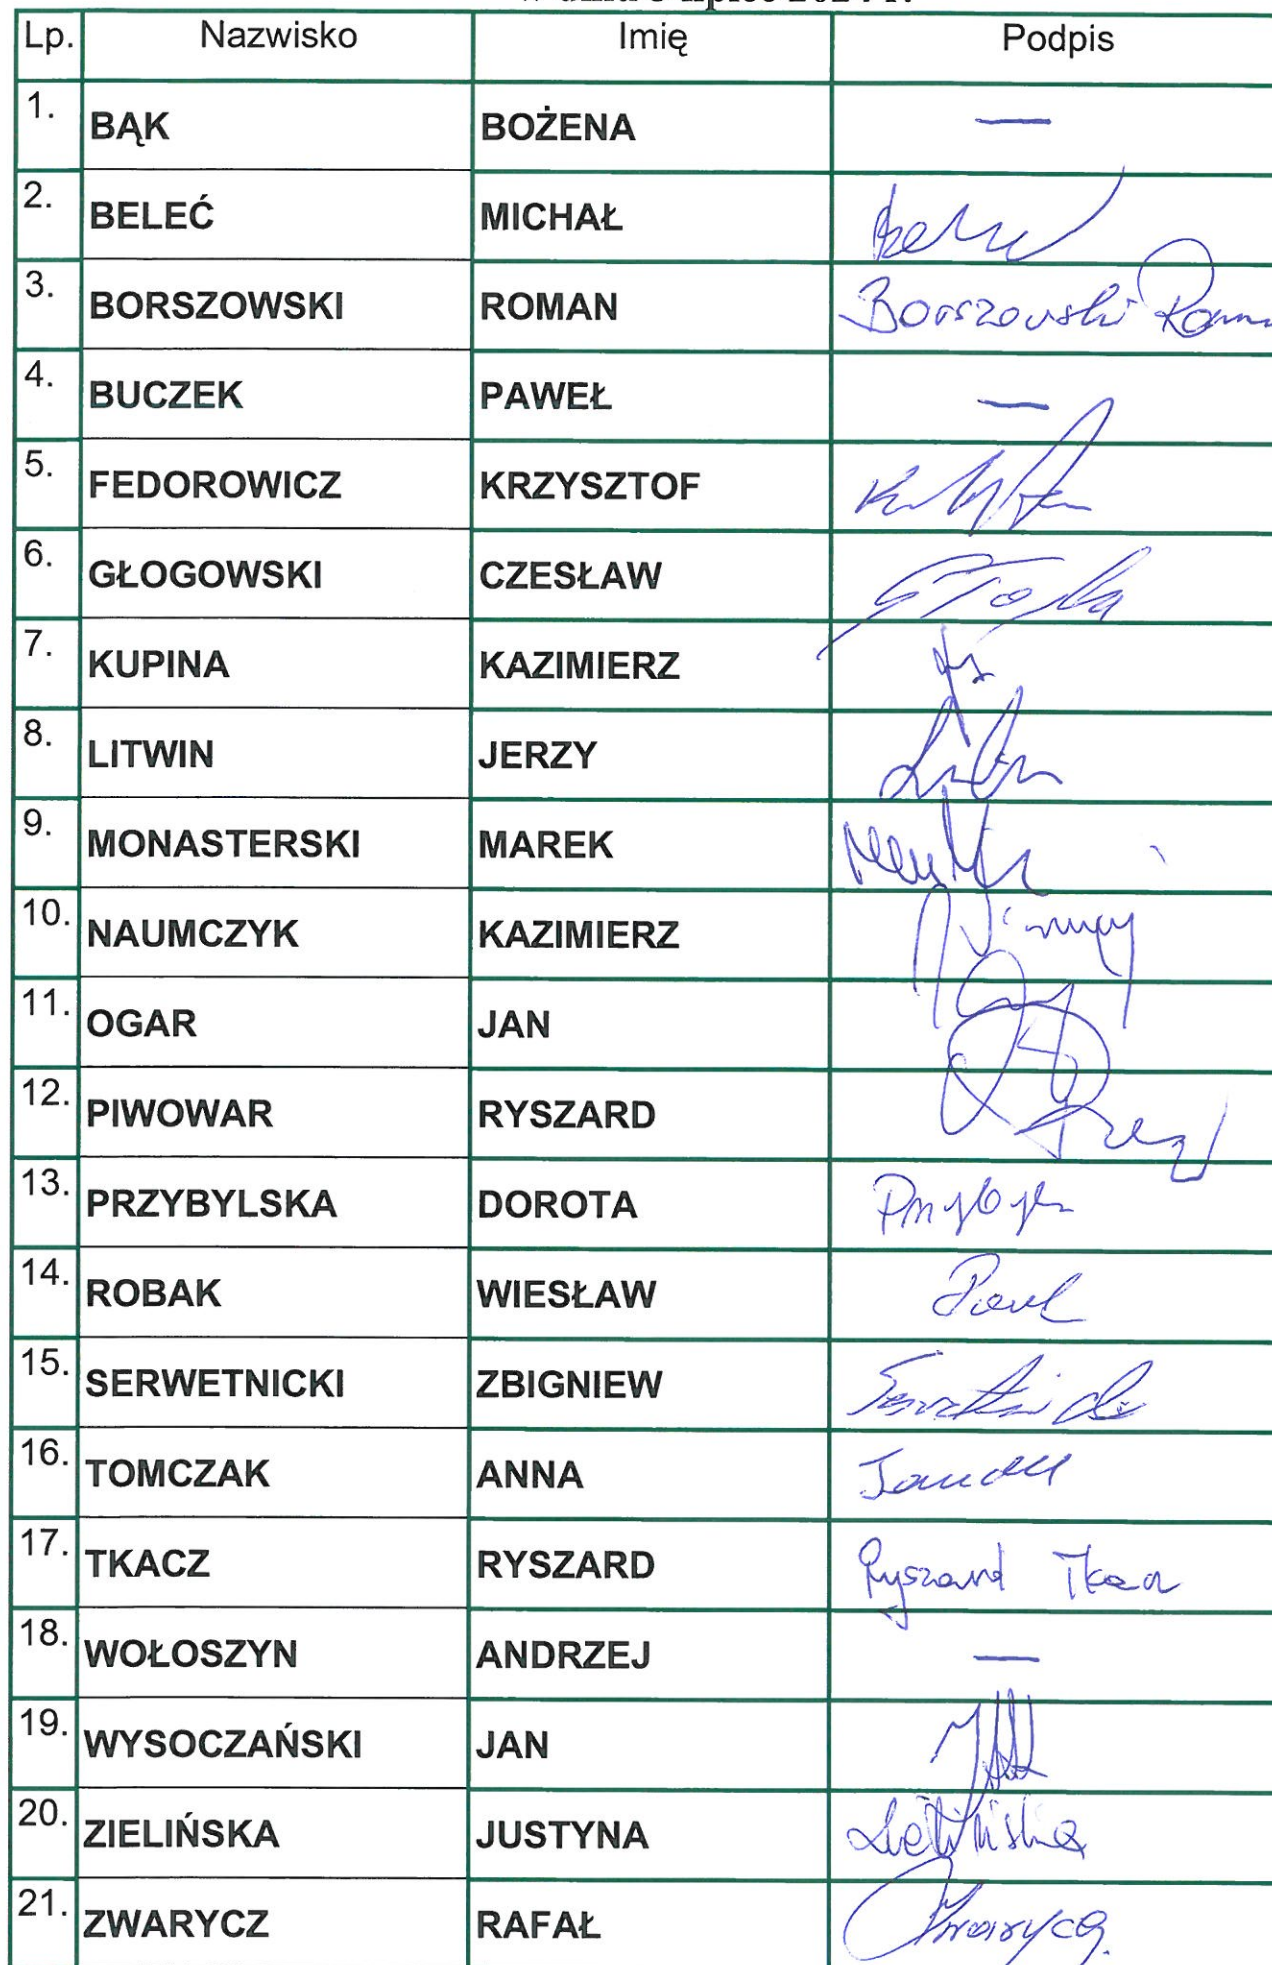 Lp. Nazwisko Imię Podpis
1. BĄK BOŻENA —
2. BELEĆ MICHAŁ
3. BORSZOWSKI ROMAN Borszowski Roman
4. BUCZEK PAWEŁ —
5. FEDOROWICZ KRZYSZTOF
6. GŁOGOWSKI CZESŁAW
7. KUPINA KAZIMIERZ
8. LITWIN JERZY
9. MONASTERSKI MAREK
10. NAUMCZYK KAZIMIERZ
11. OGAR JAN
12. PIWOWAR RYSZARD
13. PRZYBYLSKA DOROTA
14. ROBAK WIESŁAW
15. SERWETNICKI ZBIGNIEW
16. TOMCZAK ANNA
17. TKACZ RYSZARD Ryszard Tkacz
18. WOŁOSZYN ANDRZEJ —
19. WYSOCZAŃSKI JAN
20. ZIELIŃSKA JUSTYNA Zielińska
21. ZWARYCZ RAFAŁ Zwarycz